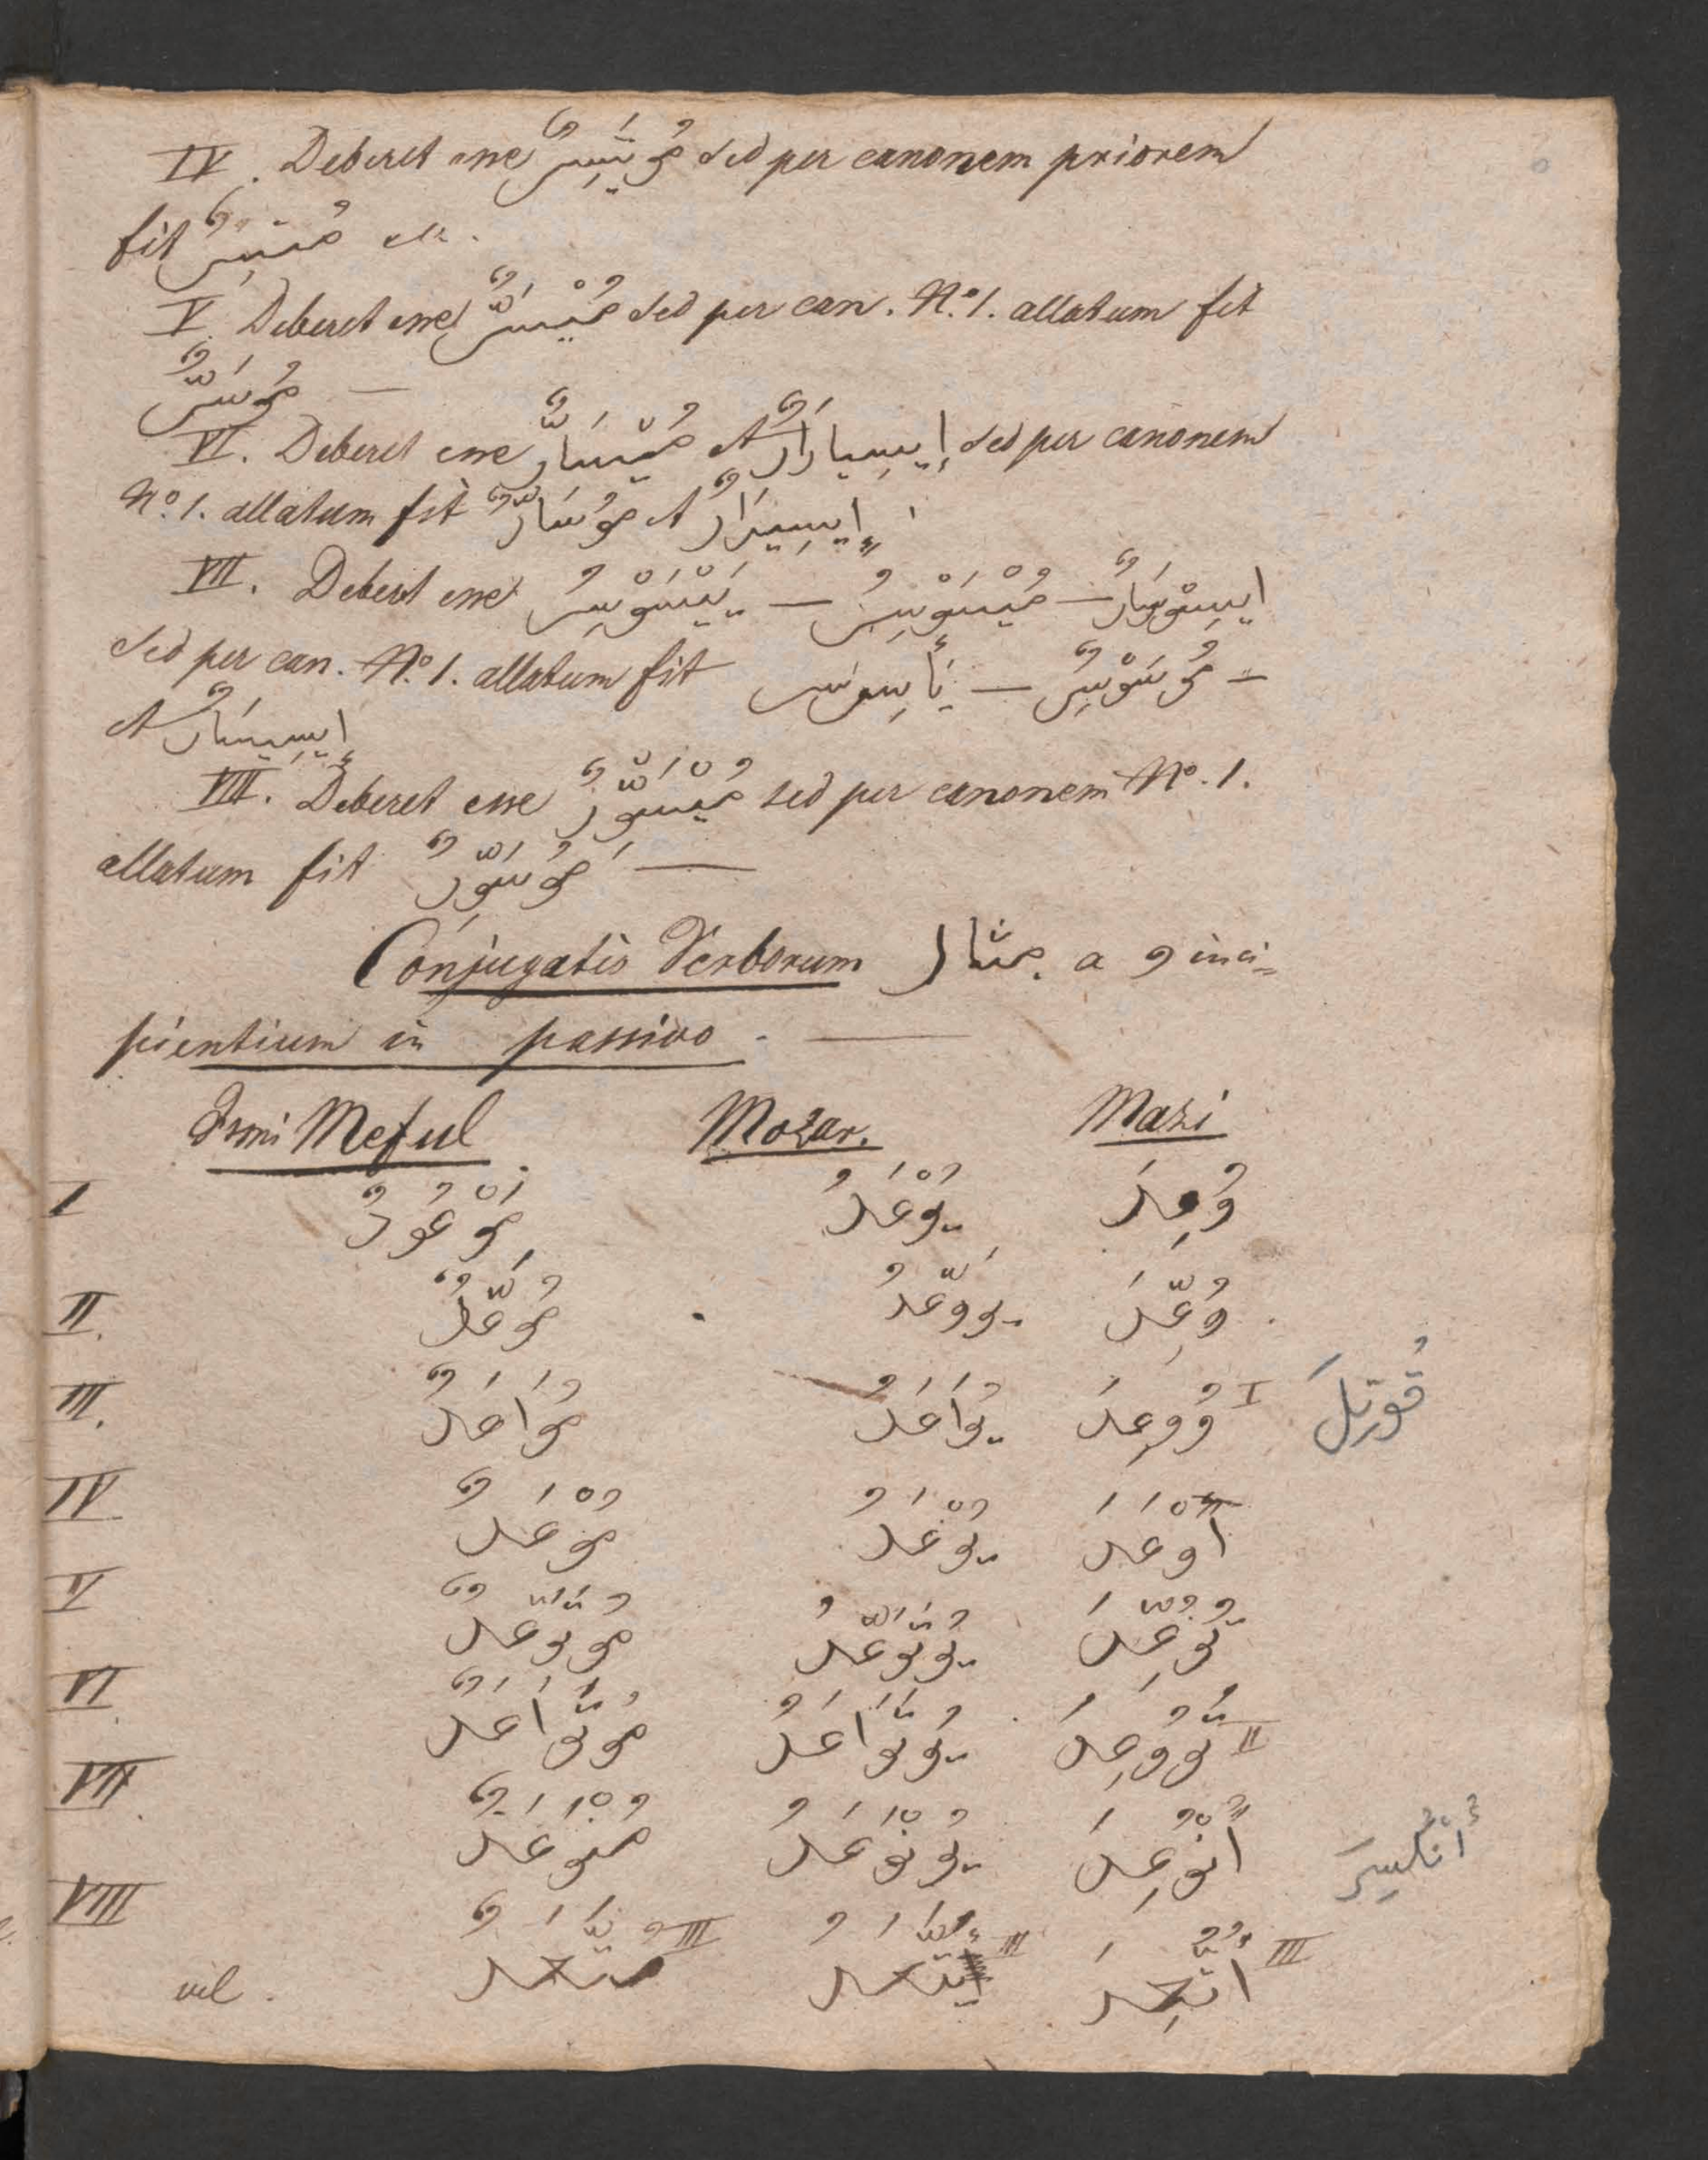 IV. Deberet esse مُوتَسِرٌ sed per canonem priorem
fit مُتسِرٌ etc.
V. Deberet esse مُيْسَرٌّ sed per can. No. 1. allatum fit
مُوسَرٌّ —
VI. Deberet esse مُيْسَارٌّ et إِيسِيارَارٌ sed per canonem
No. 1. allatum fit مُوسَارٌّ et إِيسِيرَارٌ
VII. Deberet esse يَيْسَوْسِرُ — مُيْسَوْسِرُ — ايسِوْسَارٌ
sed per can. No. 1. allatum fit — مُوسَوْسِرٌ —
et إِيسِيسَارٌ
VIII. Deberet esse مُيْسَوِّرٌ sed per canonem No. 1.
allatum fit مُوسَوِّرٌ —
Conjugatio Verborum مثال a و inci=
pientium in passivo. —
Ismi Meful. Mozar. Mazi
I مَوْعُودٌ يُوْعَدُ وُعِدَ
II. مُوَعَّدٌ يُوَعَّدُ وُعِّدَ
III. مُوَاعَدٌ يُوَاعَدُ وُوعِدَ I قُوتِلَ
IV مُوْعَدٌ يُوْعَدُ اُوْعَدَ
V مُتَوَعَّدٌ يُتَوَعَّدُ تُوُعِّدَ
VI مُتَوَاعَدٌ يُتَوَاعَدُ تُوُوعِدَ II
VII مُنْوَعَدٌ يُنْوَعَدُ اُنْوُعِدَ اُنْكُسِرَ
VIII مُتَّعَدٌ III يُتَّعَدُ III اُتُّعِدَ III
vel.